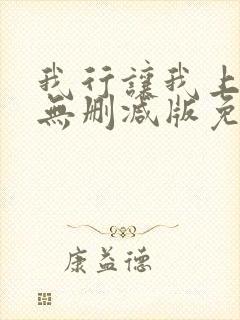 我行讓我上
無刪減版免
康益德